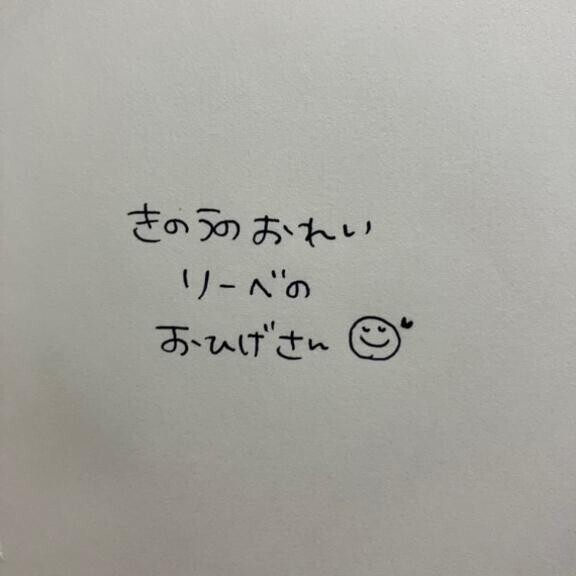 きのうの おれい
リーベの
おひげさん